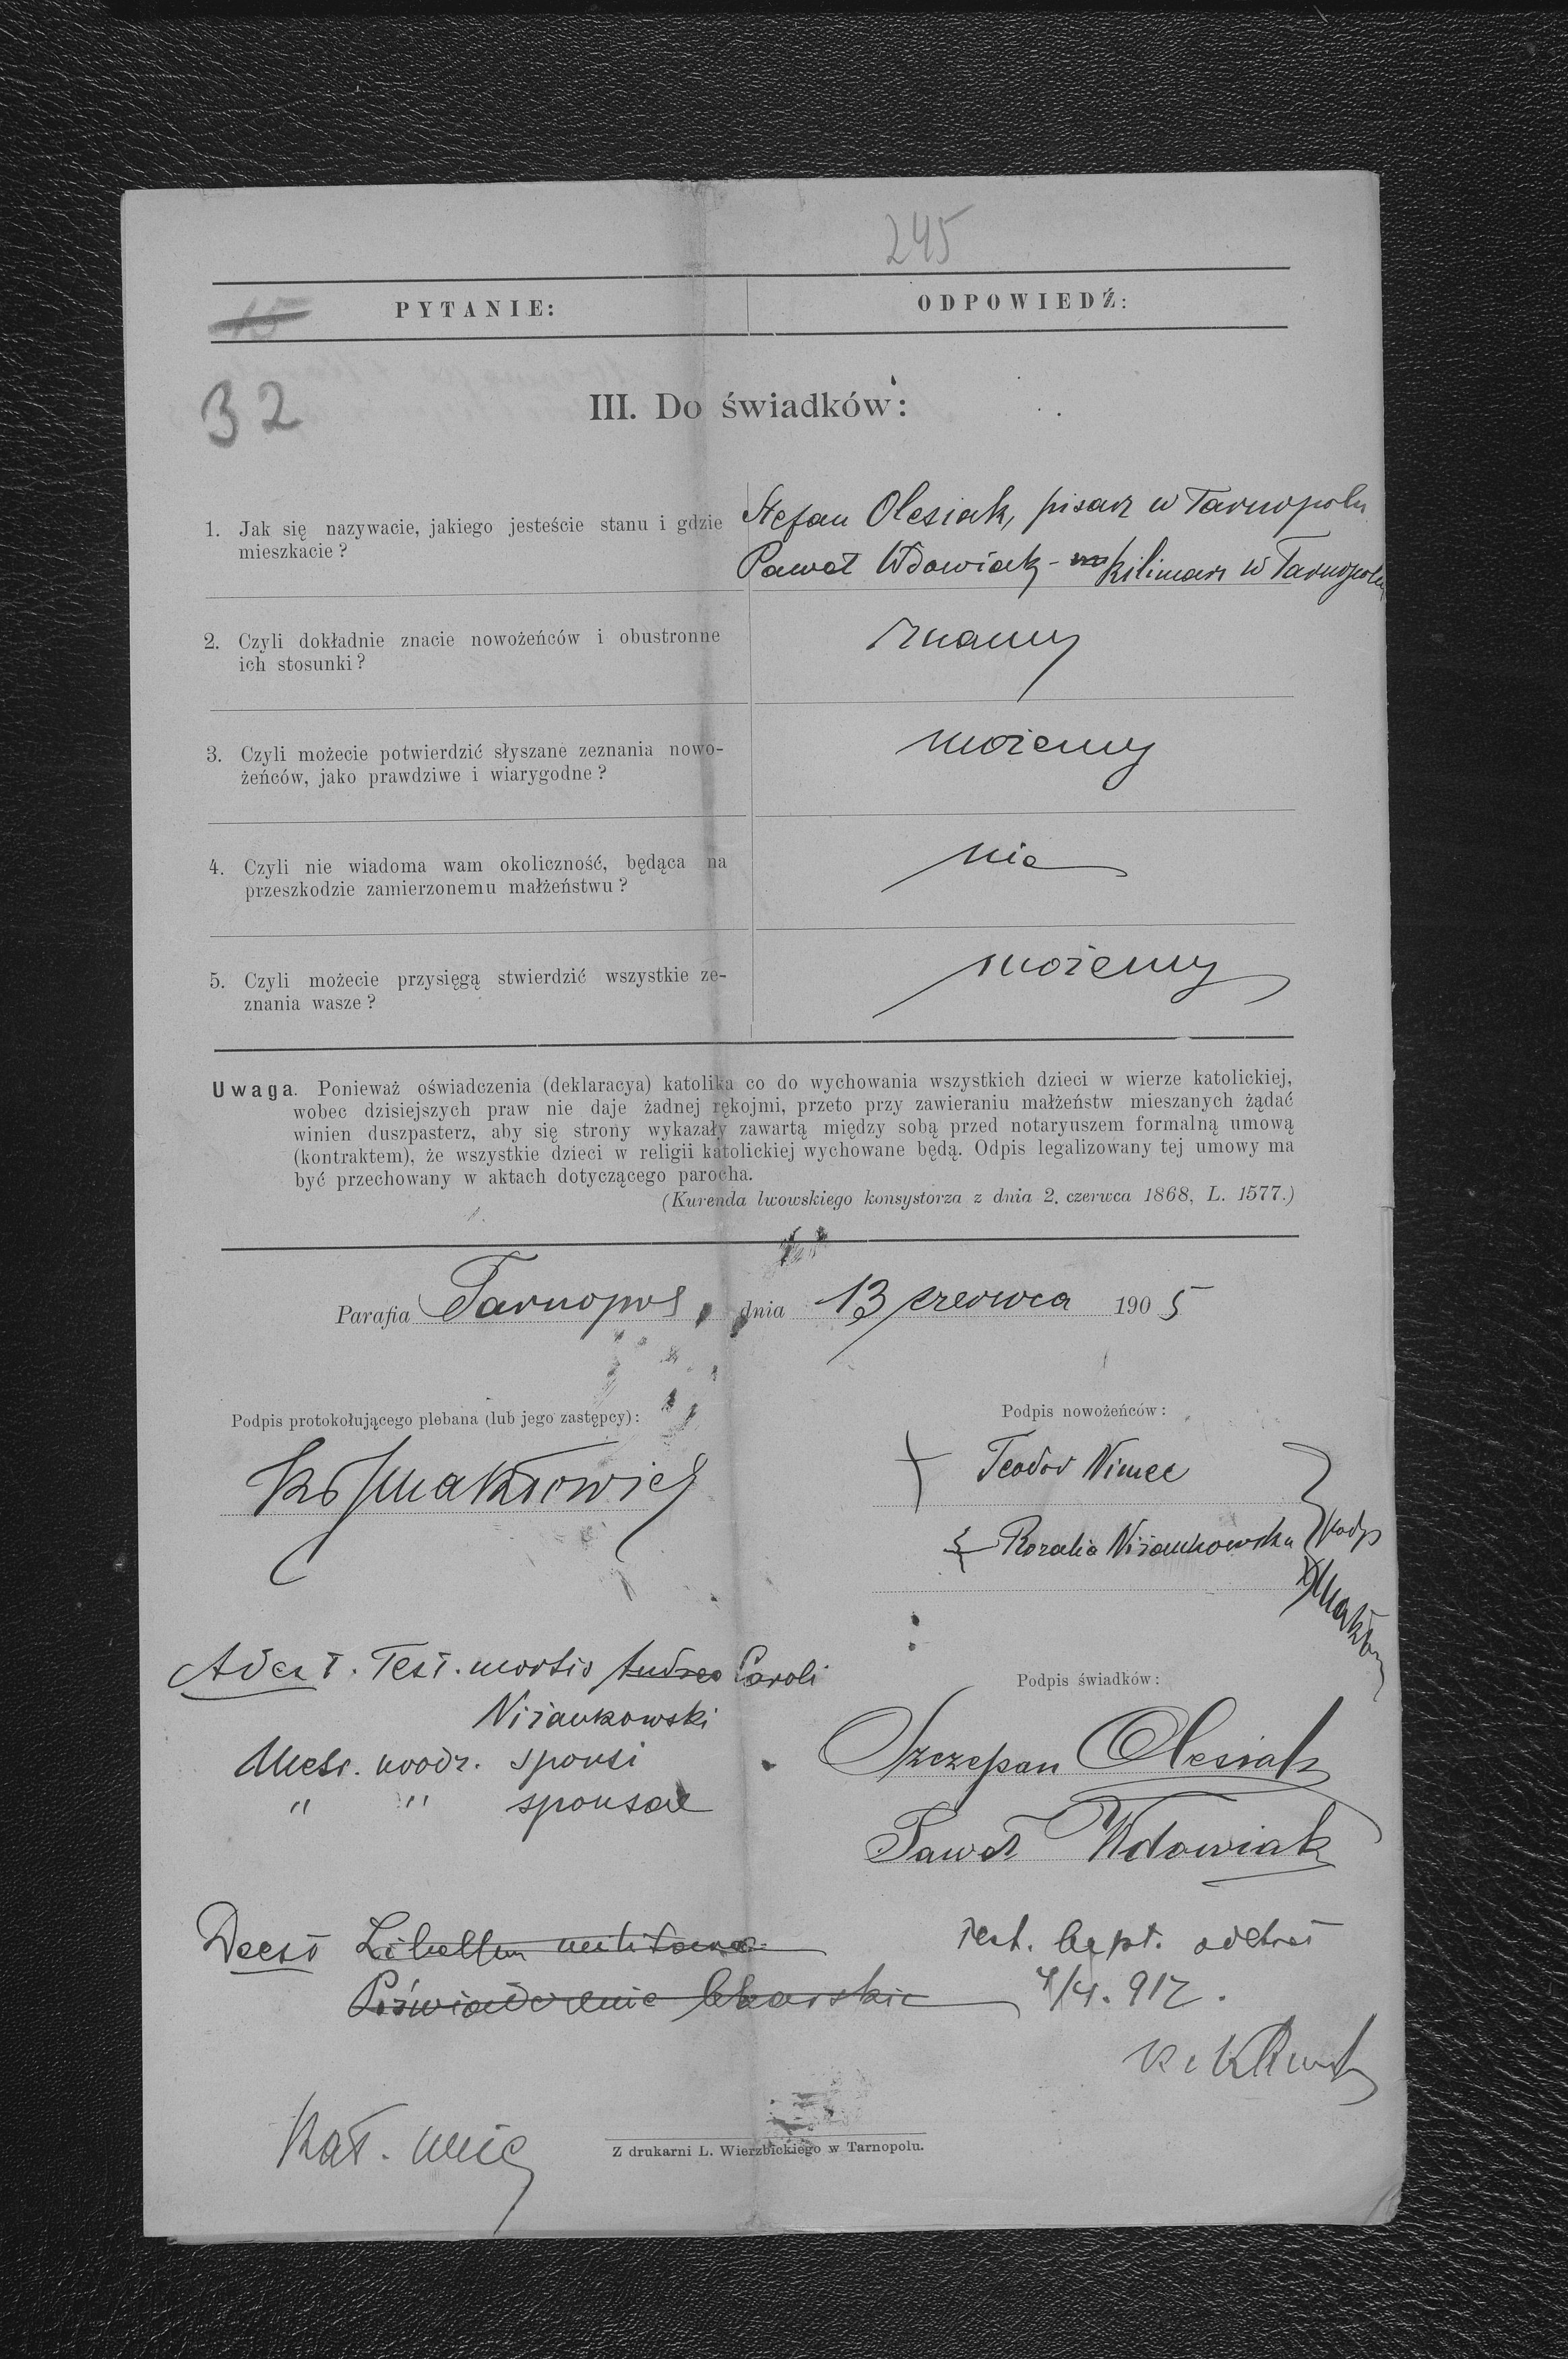 245
PYTANIE:
ODPOWIEDŹ:
32
III. Do świadków:
1. Jak się nazywacie, jakiego jesteście stanu i gdzie
mieszkacie?
Stefan Olesiak, pisarz w Tarnopolu
Paweł Wdowiak - kilimarz w Tarnopolu
2. Czyli dokładnie znacie nowożeńców i obustronne
ich stosunki?
znamy
3. Czyli możecie potwierdzić słyszane zeznania nowo-
żeńców, jako prawdziwe i wiarygodne?
możemy
4. Czyli nie wiadoma wam okoliczność, będąca na
przeszkodzie zamierzonemu małżeństwu?
nie
5. Czyli możecie przysięgą stwierdzić wszystkie ze-
znania wasze?
możemy
Uwaga. Ponieważ oświadczenia (deklaracya) katolika co do wychowania wszystkich dzieci w wierze katolickiej,
wobec dzisiejszych praw nie daje żadnej rękojmi, przeto przy zawieraniu małżeństw mieszanych żądać
winien duszpasterz, aby się strony wykazały zawartą między sobą przed notaryuszem formalną umową
(kontraktem), że wszystkie dzieci w religii katolickiej wychowane będą. Odpis legalizowany tej umowy ma
być przechowany w aktach dotyczącego parocha.
(Kurenda lwowskiego konsystorza z dnia 2. czerwca 1868, L. 1577.)
Parafia Tarnopol, dnia 13 czerwca 1905
Podpis protokołującego plebana (lub jego zastępcy):
Podpis nowożeńców:
Teodor Nimec
Rozalia Niżankowska
podp
Adest. Test. mortis Andreo Caroli
Niżankowski
Metr. urodz. sponsi
" " sponsae
Podpis świadków:
Szczepan Olesiak
Paweł Wdowiak
Deest Libellum militare
Poświadczenie lekarskie
test. bapt. odebrał
4/4. 912.
Z drukarni L. Wierzbickiego w Tarnopolu.